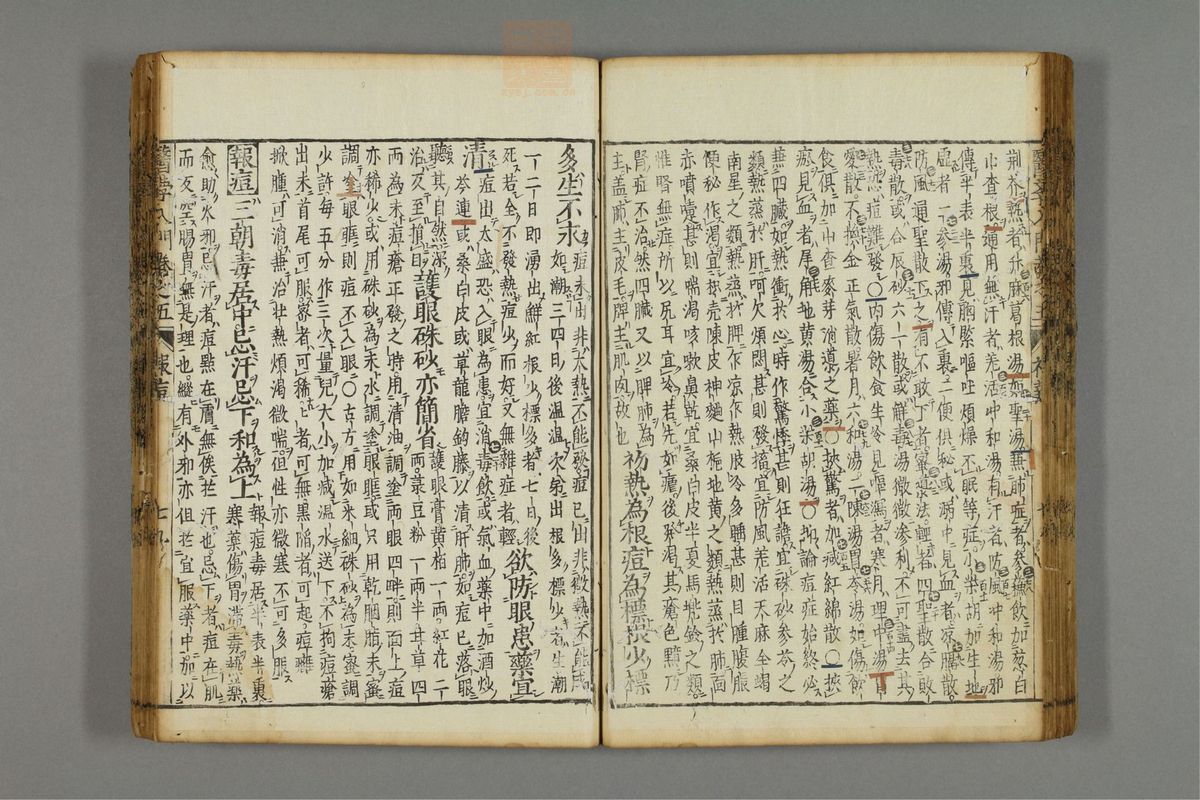 荆芥熱者升麻葛根湯加聖湯無肺症者參蘇飲加葱白
山查根通用無汗者羌活冲和湯有汗者防風冲和湯邪
傳半表半裏見胸緊嘔吐煩燥不眠等症小柴胡加生地
虛者一參湯邪傳入裏二便俱秘或溺中見血者凉膈散
防風通聖散下之有不敢下者蜜導法輕者四聖散合敗
毒散或合辰砂六一散或鮮毒湯微微滲利不可盡去其
熱恐痘難發○肉傷飲食生冷見嘔瀉者寒月理中湯
食俱加山查麥芽消導之藥○挾驚者加减紅綿散○挾
瘀見血者犀角地黃湯合小柴胡湯○抑論痘症始終必
兼四臟如熱衝於心時作驚悸甚則狂譫宜硃砂參苓之
類熱蒸於肝呵欠頓悶甚則發搐宜防風羌活天麻全蝎
南星之類熱蒸於脾乍凉乍熱肢冷多睡甚則目腫腹脹
便秘作渴宜枳壳陳皮神麯山梔地黃之類熱蒸於肺面
赤噴嚏甚則喘渴咳嗽鼻乾宜桑白皮半夏馬兜鈴之類
惟腎無症所以耳尻宜冷若先如瘧後發渴其瘡色黶乃
腎症不治然四臟又以脾肺為
主蓋肺主皮毛脾主肌肉故也
初熱為根痘為標根少標
多生不求
痘未出非大熱不能發痘已出非微熱不能
如潮三四日後温温次第出根多標少者生潮
一二日即湧出鮮紅根少標多者七日後
死若全不發熱痘少而好又無雜症者輕
欲防眼患藥宜
清
痘出太盛恐入眼為患宜消毒飲或氣血藥中加酒炒
芩連或桑白皮或草龍膽鈎藤以清肝肺如痘已落眼
聽其自然深
治反至損目
護眼硃砂亦簡省
護眼膏黃柏一兩紅花二
兩菉豆粉一兩半甘草四
兩為末痘瘡正發之時用清油調塗兩眼四畔則面上痘
亦稀少或用硃砂為末水調塗眼眶或只用乾胭脂末蜜
調塗眼眶則痘不入眼○古方用如末細硃砂為末蜜調
少許每五分作三次量兒大小加减温水送下不拘痘瘡
出未首尾可服密者可稀稀者可無黑陷者可起痘癰
掀腫可消兼治壮熱煩渴微喘但性亦微寒不可多服
報痘三朝毒居中忌汗忌下和為上
報痘毒居半表半裏
寒藥傷胃滯毒熱藥
愈助火邪忌汗者痘點在膚無俟於汗也忌下者痘在肌
而反空腸胃無是理也縱有外邪亦但於宜服藥中加以